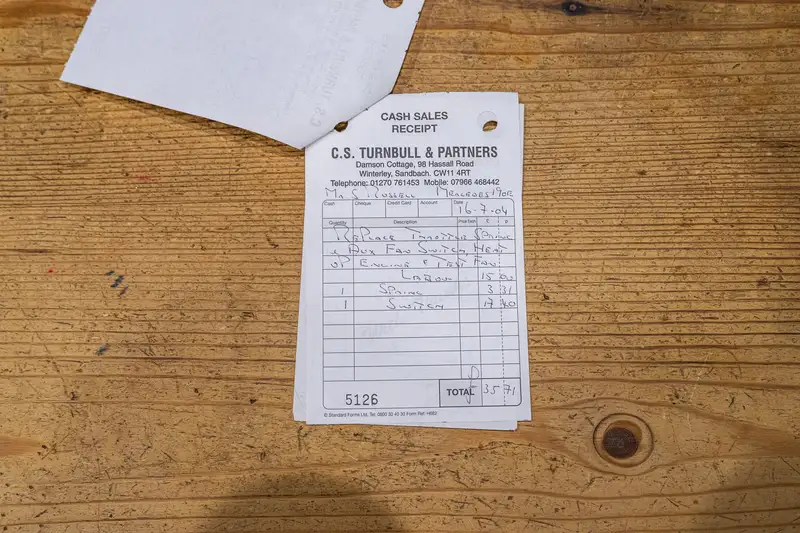 CASH SALES
RECEIPT
C.S. TURNBULL & PARTNERS
Damson Cottage, 98 Hassall Road
Winterley, Sandbach. CW11 4RT
Telephone: 01270 761453 Mobile: 07966 468442
Mr S Russell Mercedes
Cash Cheque Credit Card Account Date 16.7.04
Quantity Description £ p
Replace Throttle Spring
& Aux Fan Switch, Heat
up Engine & Test Fan
Labour 15 00
1 Spring 3 31
1 Switch 17 40
5126 TOTAL £ 35 71
© Standard Forms Ltd. Tel: 0800 30 40 30 Form Ref: